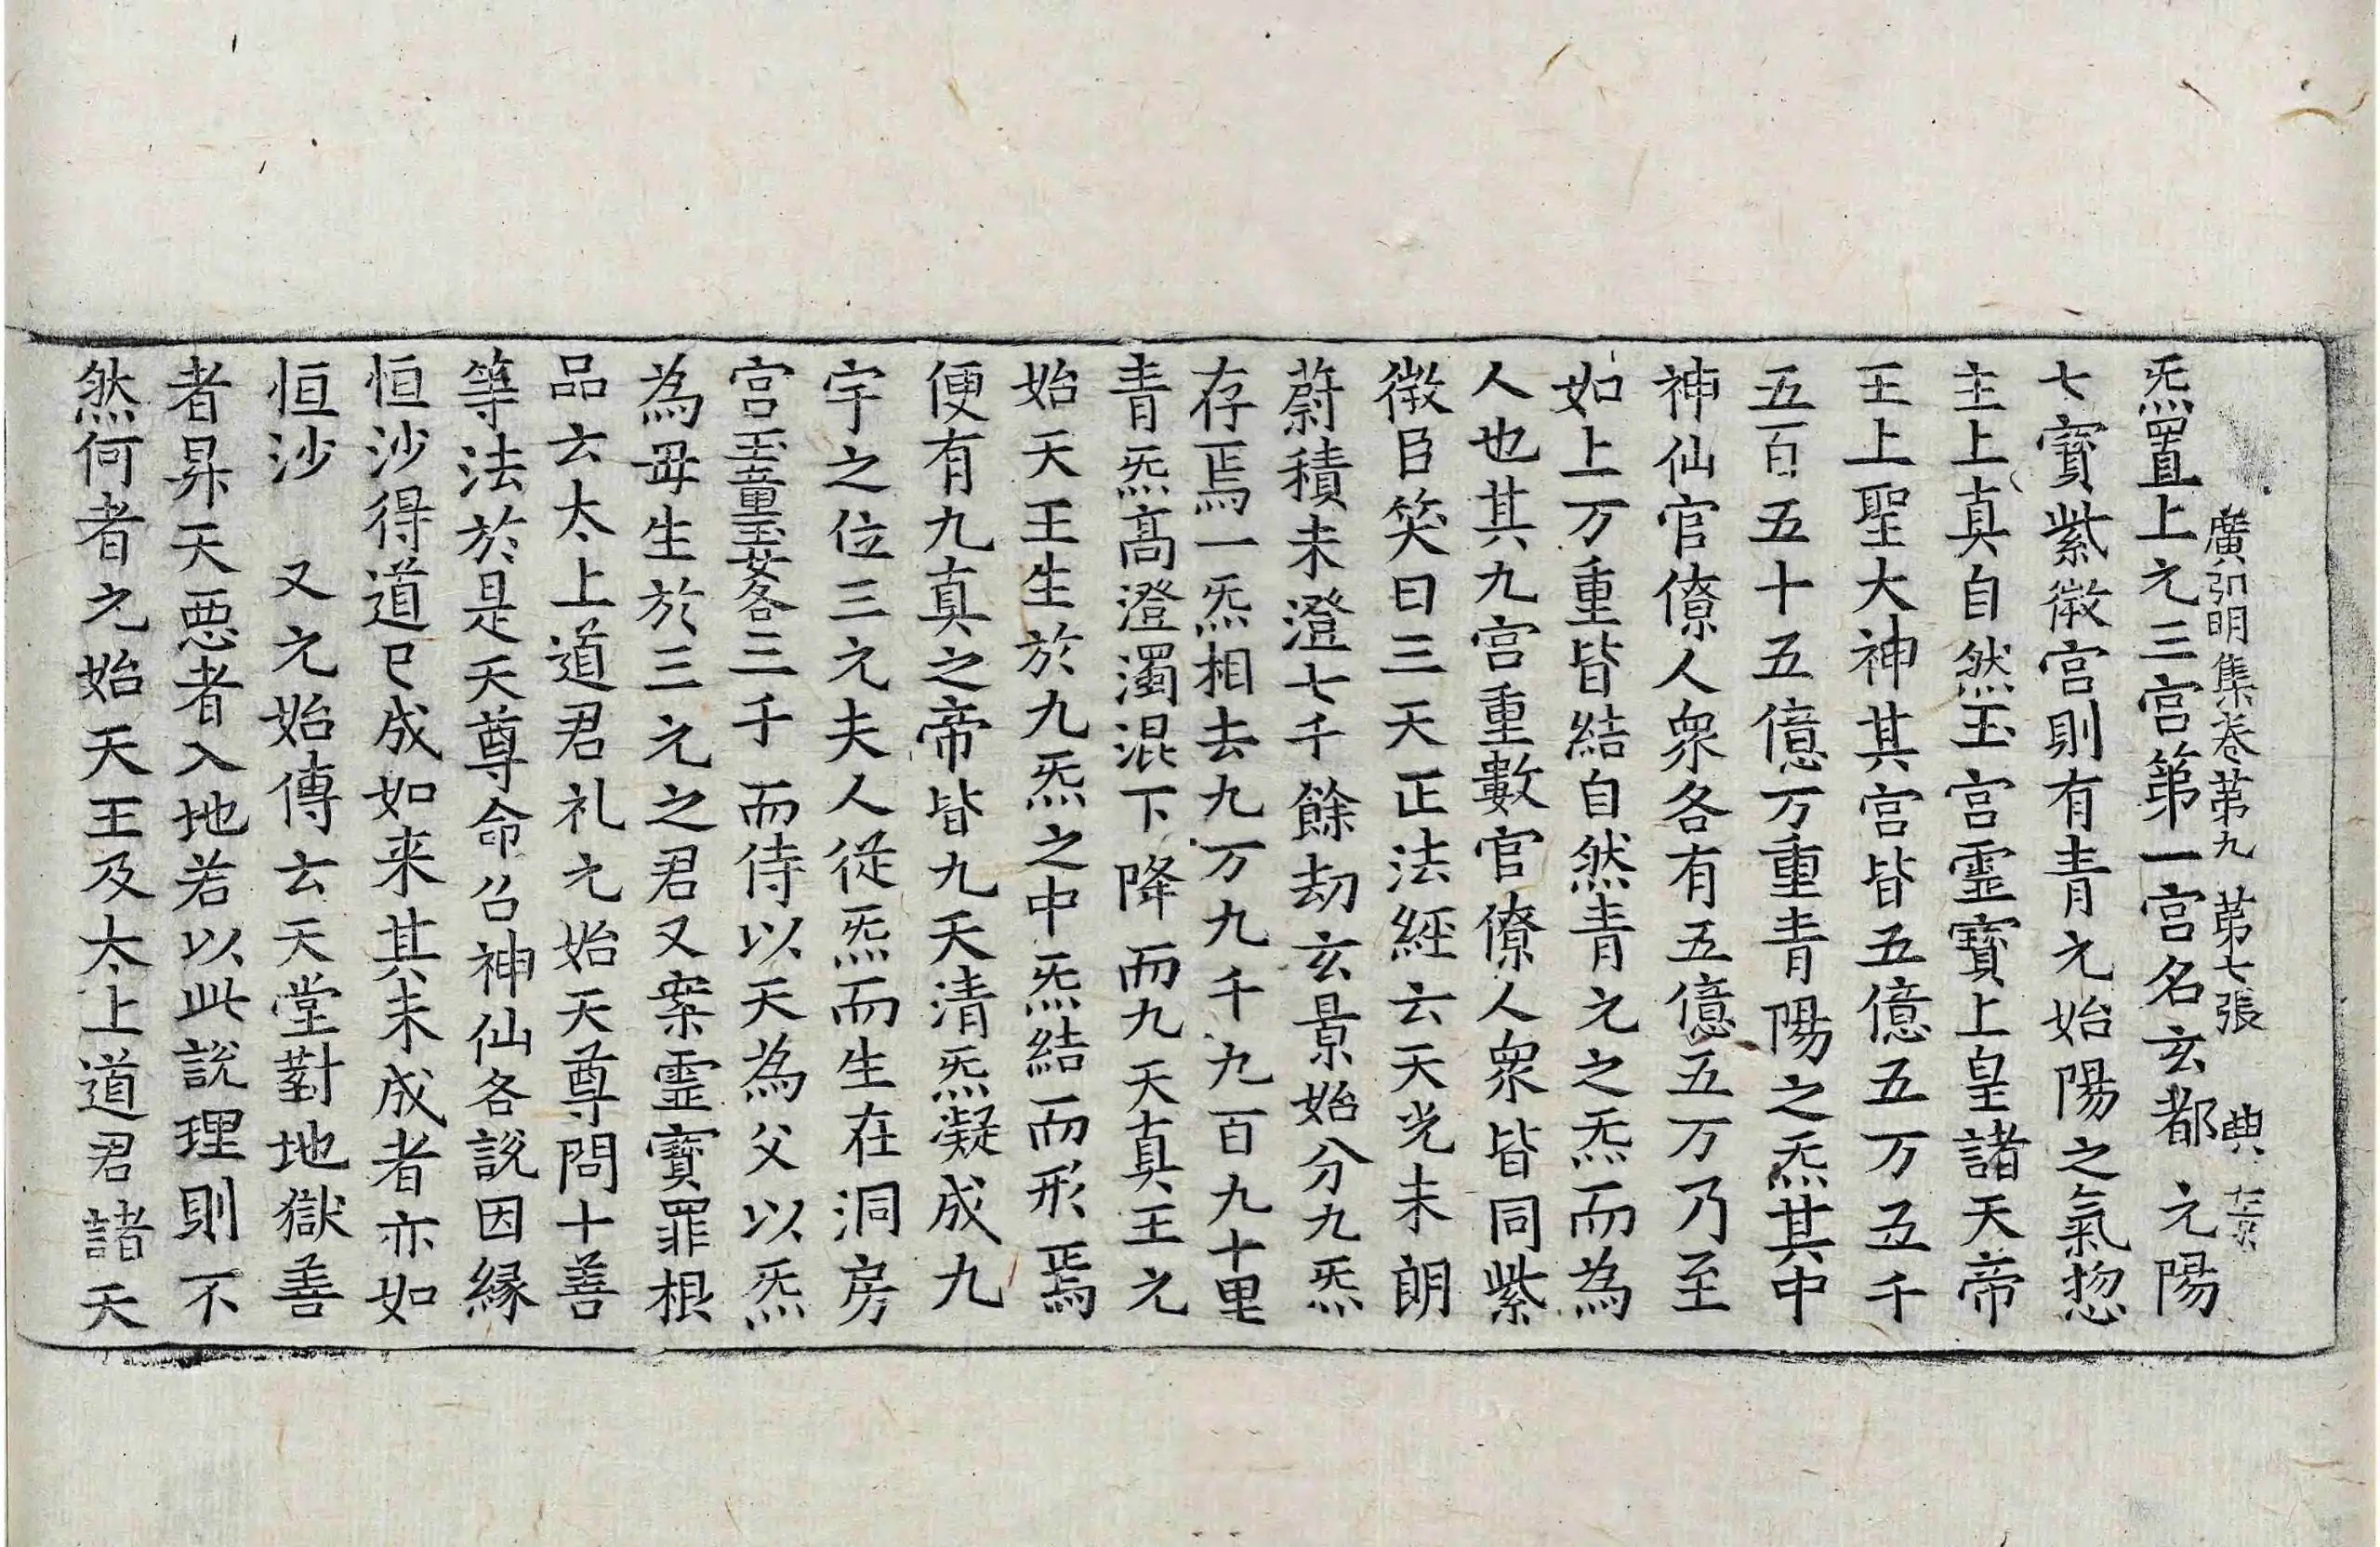 廣弘明集卷第九　第七張　典
炁置上元三宮第一宮名玄都元陽
七寶紫微宮則有青元始陽之氣惣
主上真自然玉宮靈寶上皇諸天帝
王上聖大神其宮皆五億五万五千
五百五十五億万重青陽之炁其中
神仙官僚人衆各有五億五万乃至
如上万重皆結自然青元之炁而為
人也其九宮重數官僚人衆皆同紫
微臣笑曰三天正法經云天光未朗
蔚積未澄七千餘劫玄景始分九炁
存焉一炁相去九万九千九百九十里
青炁高澄濁混下降而九天真王元
始天王生於九炁之中炁結而形焉
便有九真之帝皆九天清炁凝成九
宇之位三元夫人従炁而生在洞房
宮玉童玉女各三千而侍以天為父以炁
為母生於三元之君又案靈寶罪根
品云太上道君礼元始天尊問十善
等法於是天尊命召神仙各說因縁
恒沙得道已成如来其未成者亦如
恒沙　又元始傳云天堂對地獄善
者昇天悪者入地若以此說理則不
然何者元始天王及太上道君諸天